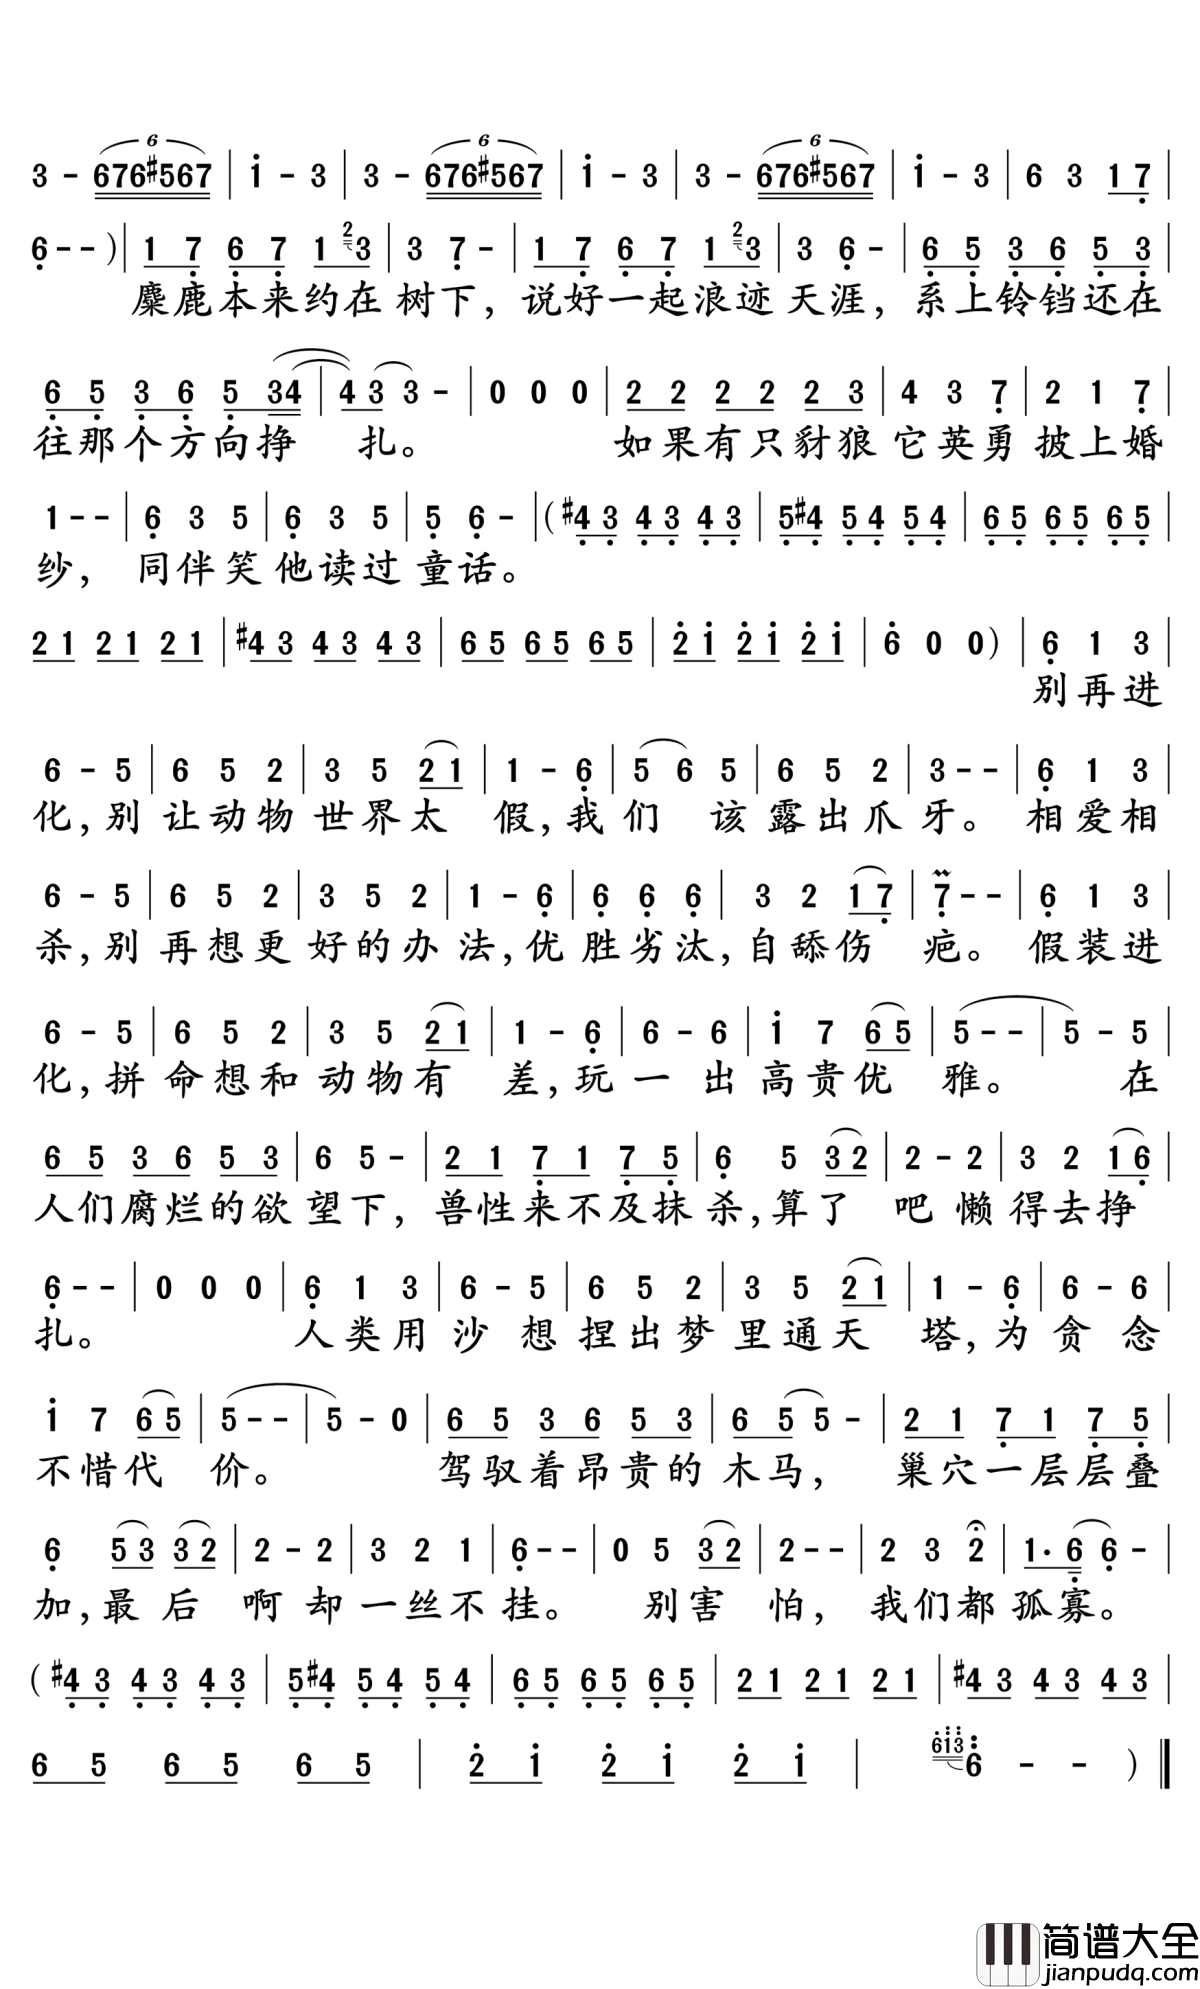 3 - 676#567 | i - 3 | 3 - 676#567 | i - 3 | 3 - 676#567 | i - 3 | 6 3 1 7 |
6 - - ) | 1 7 6 7 1 2 3 | 3 7 - | 1 7 6 7 1 2 3 | 3 6 - | 6 5 3 6 5 3 |
麋鹿本来约在树下，说好一起浪迹天涯，系上铃铛还在
6 5 3 6 5 34 | 4 3 3 - | 0 0 0 | 2 2 2 2 2 3 | 4 3 7 | 2 1 7 |
往那个方向挣扎。如果有只豺狼它英勇披上婚
1 - - | 6 3 5 | 6 3 5 | 5 6 - | ( #4 3 4 3 4 3 | 5 #4 5 4 5 4 | 6 5 6 5 6 5 |
纱，同伴笑他读过童话。
2 1 2 1 2 1 | #4 3 4 3 4 3 | 6 5 6 5 6 5 | 2 i 2 i 2 i | 6 0 0 ) | 6 1 3 |
别再进
6 - 5 | 6 5 2 | 3 5 2 1 | 1 - 6 | 5 6 5 | 6 5 2 | 3 - - | 6 1 3 |
化，别让动物世界太假，我们该露出爪牙。相爱相
6 - 5 | 6 5 2 | 3 5 2 | 1 - 6 | 6 6 6 | 3 2 1 7 | 7 - - | 6 1 3 |
杀，别再想更好的办法，优胜劣汰，自舔伤疤。假装进
6 - 5 | 6 5 2 | 3 5 2 1 | 1 - 6 | 6 - 6 | i 7 6 5 | 5 - - | 5 - 5 |
化，拼命想和动物有差，玩一出高贵优雅。在
6 5 3 6 5 3 | 6 5 - | 2 1 7 1 7 5 | 6 5 3 2 | 2 - 2 | 3 2 1 6 |
人们腐烂的欲望下，兽性来不及抹杀，算了吧懒得去挣
6 - - | 0 0 0 | 6 1 3 | 6 - 5 | 6 5 2 | 3 5 2 1 | 1 - 6 | 6 - 6 |
扎。人类用沙想捏出梦里通天塔，为贪念
i 7 6 5 | 5 - - | 5 - 0 | 6 5 3 6 5 3 | 6 5 5 - | 2 1 7 1 7 5 |
不惜代价。驾驭着昂贵的木马，巢穴一层层叠
6 5 3 3 2 | 2 - 2 | 3 2 1 | 6 - - | 0 5 3 2 | 2 - - | 2 3 2 | 1· 6 6 - |
加，最后啊却一丝不挂。别害怕，我们都孤寡。
( #4 3 4 3 4 3 | 5 #4 5 4 5 4 | 6 5 6 5 6 5 | 2 1 2 1 2 1 | #4 3 4 3 4 3 |
6 5 6 5 6 5 | 2 i 2 i 2 i | 6i3 6 - - )
简谱大全
jianpudq.com